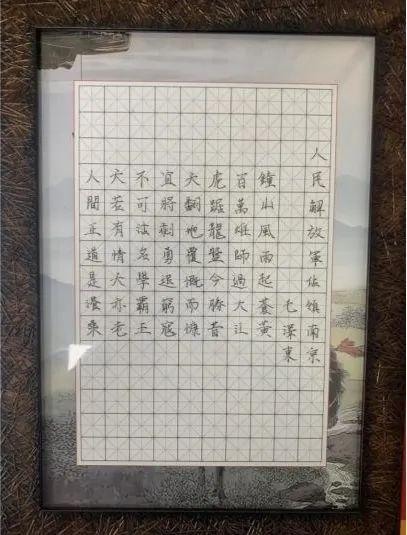 人民解放軍佔領南京
毛澤東
鐘山風雨起蒼黃
百萬雄師過大江
虎踞龍盤今勝昔
天翻地覆慨而慷
宜將剩勇追窮寇
不可沽名學霸王
天若有情天亦老
人間正道是滄桑